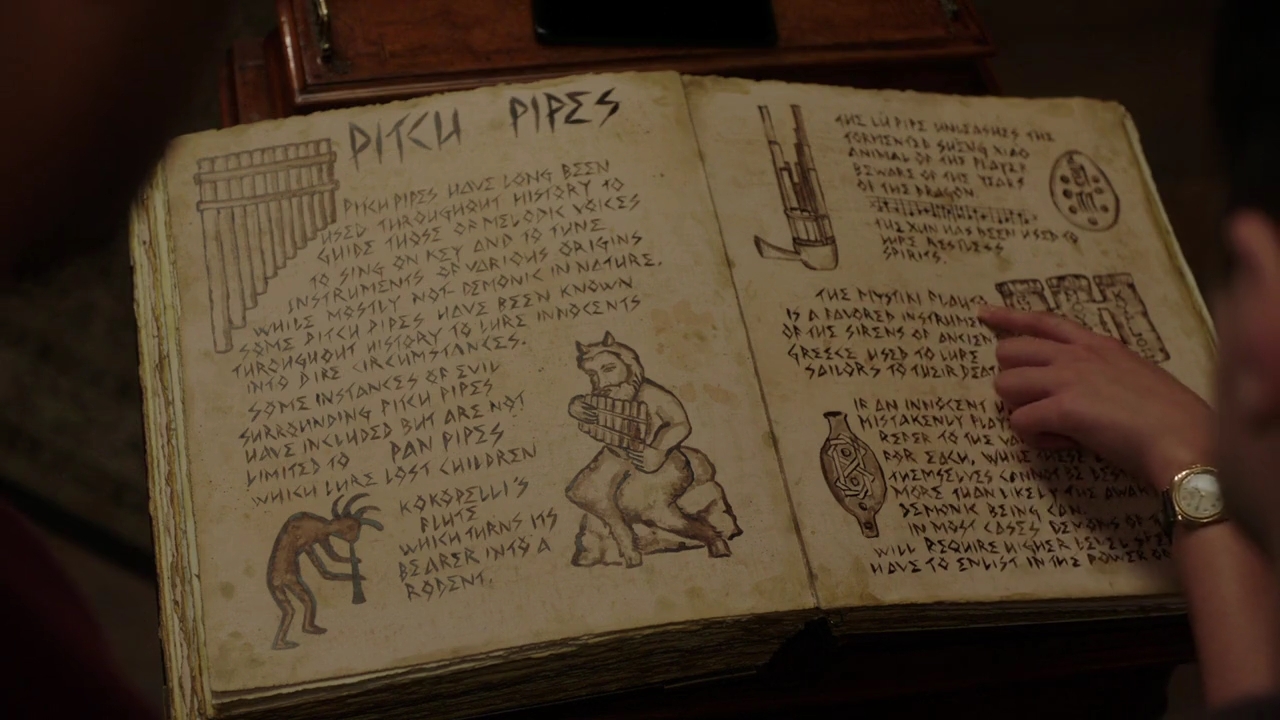 PITCH PIPES
PITCH PIPES HAVE LONG BEEN
USED THROUGHOUT HISTORY TO
GUIDE THOSE OF MELODIC VOICES
TO SING ON KEY AND TO TUNE
INSTRUMENTS OF VARIOUS ORIGINS
WHILE MOSTLY NOT DEMONIC IN NATURE.
SOME PITCH PIPES HAVE BEEN KNOWN
THROUGHOUT HISTORY TO LURE INNOCENTS
INTO DIRE CIRCUMSTANCES.
SOME INSTANCES OF EVIL
SURROUNDING PITCH PIPES
HAVE INCLUDED BUT ARE NOT
LIMITED TO PAN PIPES
WHICH LURE LOST CHILDREN
KOKOPELLI'S
FLUTE
WHICH TURNS ITS
BEARER INTO A
RODENT.
THE LU PIPE UNLEASHES THE
TORMENTED SHENG XIAO
ANIMAL OF THE PLAYER
BEWARE OF THE YEARS
OF THE DRAGON.
THE XUN HAS BEEN USED TO
LURE RESTLESS
SPIRITS.
THE
IS A FAVORED INSTRUMEN
OF THE SIRENS OF ANCIEN
GREECE USED TO LURE
SAILORS TO THEIR DEAT
IF AN INNOCENT
MISTAKENLY PLAY
REFER TO THE
FOR EACH, WHILE THESE
THEMSELVES CANNOT BE
MORE THAN LIKELY THE
DEMONIC BEING CAN.
IN MOST CASES DEMONS OF
WILL REQUIRE HIGHER LEVEL
HAVE TO ENLIST IN THE POWER